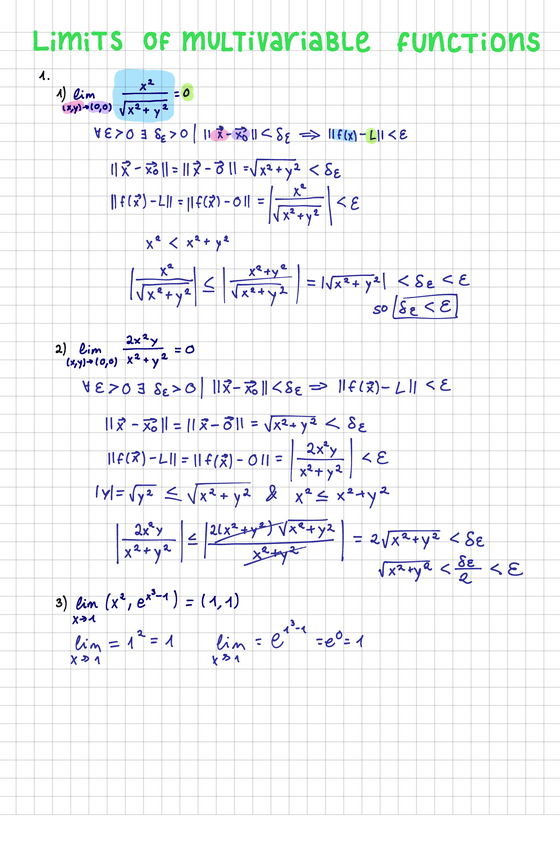 LiMiTS OF MULTiVARiABLE FUNCTiONS
1.
1) lim (x,y)→(0,0) x²/√(x²+y²) = 0
∀ε>0 ∃ δε>0 | ||x⃗-x⃗₀||<δε ⟹ ||f(x⃗)-L||<ε
||x⃗-x⃗₀|| = ||x⃗-0⃗|| = √(x²+y²) < δε
||f(x⃗)-L|| = ||f(x⃗)-0|| = |x²/√(x²+y²)| < ε
x² < x²+y²
|x²/√(x²+y²)| ≤ |(x²+y²)/√(x²+y²)| = |√(x²+y²)| < δε < ε
so δε < ε
2) lim (x,y)→(0,0) 2x²y/(x²+y²) = 0
∀ε>0 ∃ δε>0 | ||x⃗-x⃗₀||<δε ⟹ ||f(x⃗)-L||<ε
||x⃗-x⃗₀|| = ||x⃗-0⃗|| = √(x²+y²) < δε
||f(x⃗)-L|| = ||f(x⃗)-0|| = |2x²y/(x²+y²)| < ε
|y| = √y² ≤ √(x²+y²) & x² ≤ x²+y²
|2x²y/(x²+y²)| ≤ |2(x²+y²)√(x²+y²)/(x²+y²)| = 2√(x²+y²) < δε
√(x²+y²) < δε/2 < ε
3) lim x→1 (x², e^(x³-1)) = (1,1)
lim x→1 = 1² = 1 lim x→1 = e^(1³-1) = e⁰ = 1